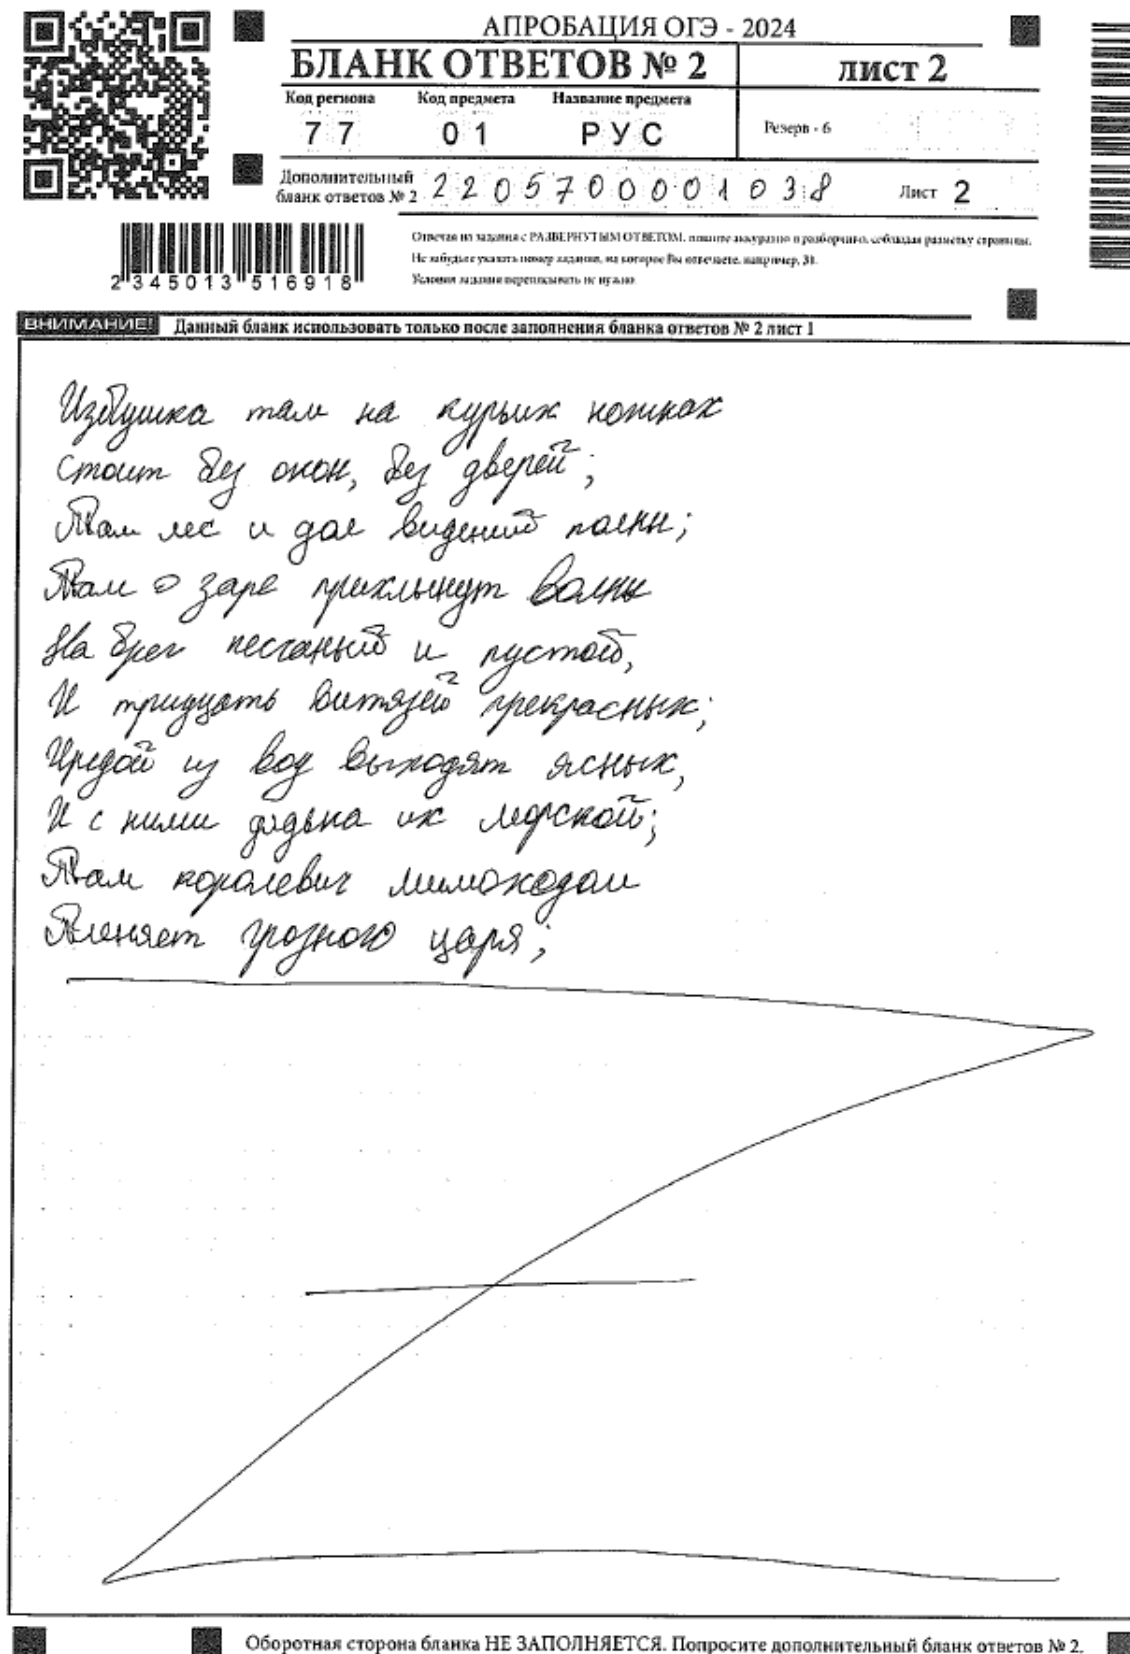 АПРОБАЦИЯ ОГЭ - 2024
БЛАНК ОТВЕТОВ № 2
лист 2
Код региона Код предмета Название предмета
77 01 РУС
Резерв - 6
Дополнительный бланк ответов № 2 2205700001038 Лист 2
Отвечая на задания с РАЗВЕРНУТЫМ ОТВЕТОМ, пишите аккуратно и разборчиво, соблюдая разметку страницы.
Не забудьте указать номер задания, на которое Вы отвечаете, например, 31.
Условия задания переписывать не нужно.
2345013516918
ВНИМАНИЕ! Данный бланк использовать только после заполнения бланка ответов № 2 лист 1
Избушка там на курьих ножках
стоит без окон, без дверей;
Там лес и дол видений полны;
Там о заре прихлынут волны
На брег песчаный и пустой,
И тридцать витязей прекрасных;
Чредой из вод выходят ясных,
И с ними дядька их морской;
Там королевич мимоходом
Пленяет грозного царя;
Оборотная сторона бланка НЕ ЗАПОЛНЯЕТСЯ. Попросите дополнительный бланк ответов № 2.